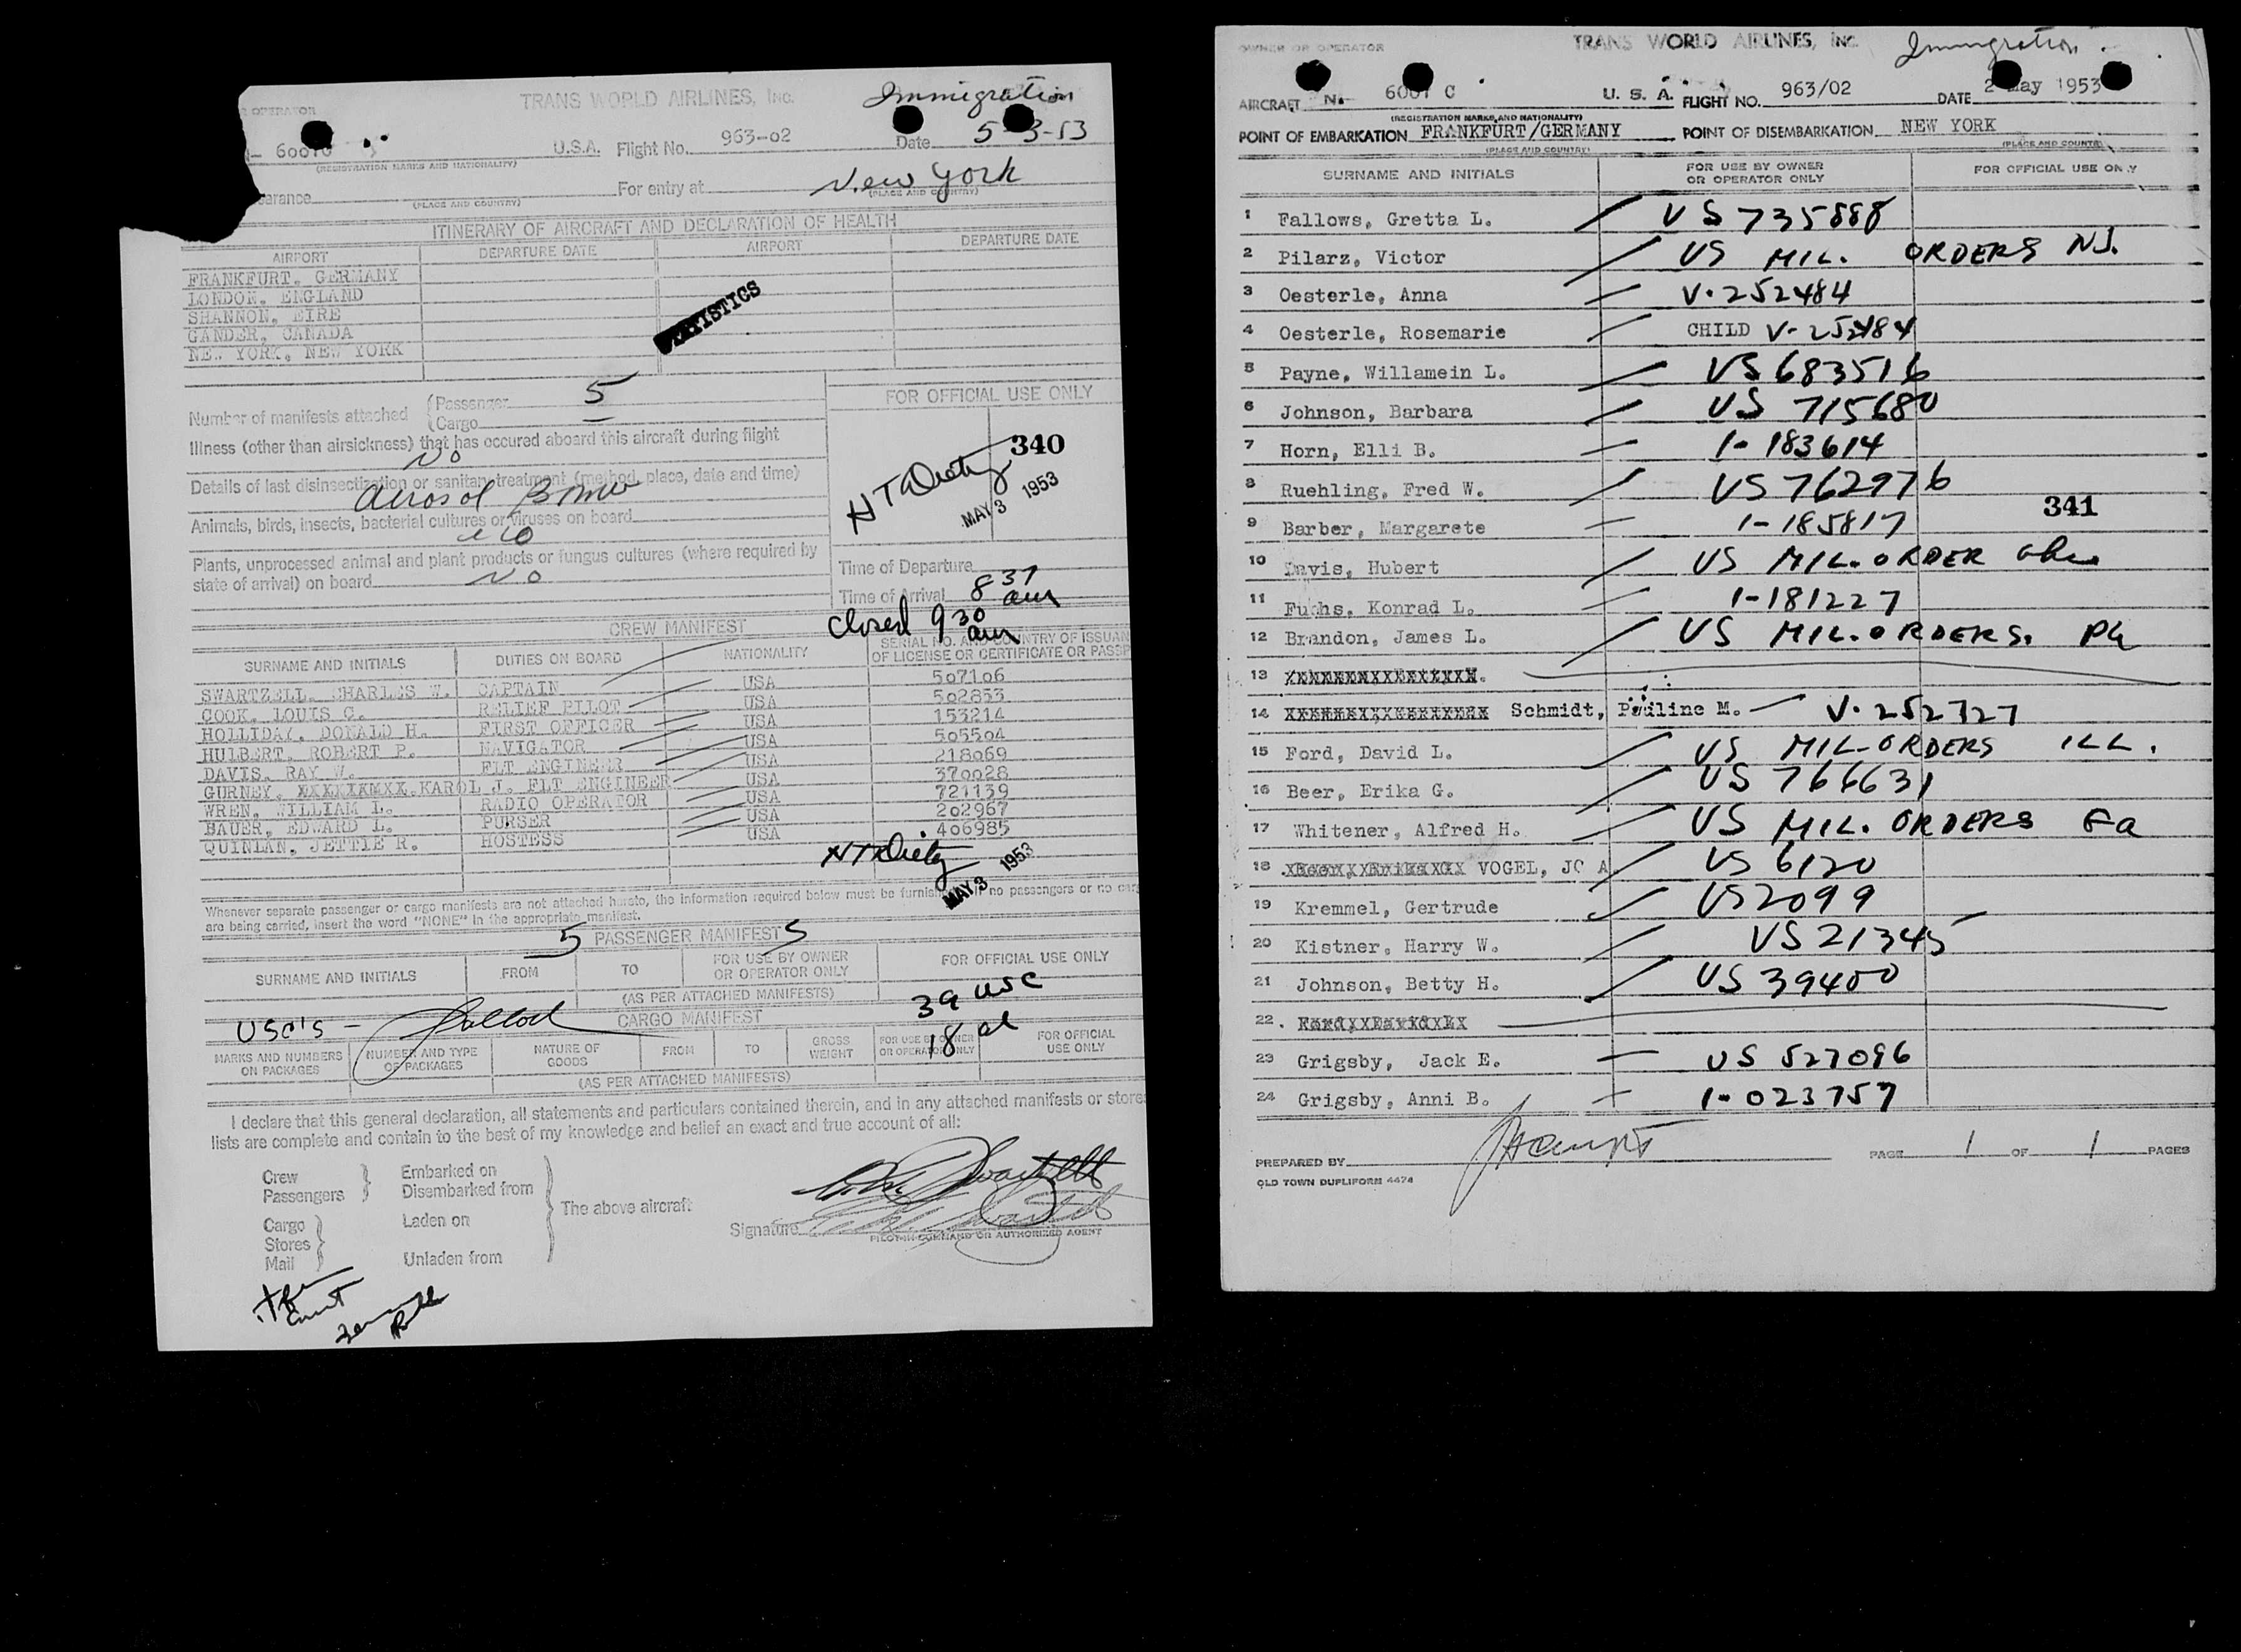 OPERATOR
TRANS WORLD AIRLINES, INC.
Immigration
6001C U.S.A. Flight No. 963-02 Date 5-3-53
(REGISTRATION MARKS AND NATIONALITY)
earance (PLACE AND COUNTRY) For entry at New York (PLACE AND COUNTRY)
ITINERARY OF AIRCRAFT AND DECLARATION OF HEALTH
AIRPORT DEPARTURE DATE AIRPORT DEPARTURE DATE
FRANKFURT, GERMANY
LONDON, ENGLAND
SHANNON, EIRE
GANDER, CANADA
NEW YORK, NEW YORK
Number of manifests attached (Passenger 5
(Cargo —
Illness (other than airsickness) that has occured aboard this aircraft during flight
No
Details of last disinsectization or sanitary treatment (method, place, date and time)
Aerosol Bomb
Animals, birds, insects, bacterial cultures or viruses on board
No
Plants, unprocessed animal and plant products or fungus cultures (where required by
state of arrival) on board No
FOR OFFICIAL USE ONLY
340
MAY 3 1953
Time of Departure
Time of Arrival 8 37 am
Closed 9 30 am
CREW MANIFEST
SURNAME AND INITIALS DUTIES ON BOARD NATIONALITY SERIAL NO. AND COUNTRY OF ISSUAN
OF LICENSE OR CERTIFICATE OR PASSP
SWARTZELL, CHARLES W. CAPTAIN USA 507106
COOK, LOUIS C. RELIEF PILOT USA 502853
HOLLIDAY, DONALD H. FIRST OFFICER USA 153214
HULBERT, ROBERT P. NAVIGATOR USA 505504
DAVIS, RAY W. FLT ENGINEER USA 218069
GURNEY, KAROL J. FLT ENGINEER USA 370028
WREN, WILLIAM L. RADIO OPERATOR USA 721139
BAUER, EDWARD L. PURSER USA 202967
QUINLAN, JETTIE R. HOSTESS USA 406985
MAY 3 1953
Whenever separate passenger or cargo manifests are not attached hereto, the information required below must be furnished. If no passengers or no car
are being carried, insert the word "NONE" in the appropriate manifest.
5 PASSENGER MANIFEST 5
SURNAME AND INITIALS FROM TO FOR USE BY OWNER OR OPERATOR ONLY FOR OFFICIAL USE ONLY
(AS PER ATTACHED MANIFESTS) 39 usc
USC's — CARGO MANIFEST 18 al
MARKS AND NUMBERS ON PACKAGES NUMBER AND TYPE OF PACKAGES NATURE OF GOODS FROM TO GROSS WEIGHT FOR USE BY OWNER OR OPERATOR ONLY FOR OFFICIAL USE ONLY
(AS PER ATTACHED MANIFESTS)
I declare that this general declaration, all statements and particulars contained therein, and in any attached manifests or stores
lists are complete and contain to the best of my knowledge and belief an exact and true account of all:
Crew Embarked on
Passengers Disembarked from
The above aircraft
Cargo Laden on
Stores
Mail Unladen from
Signature
PILOT-IN-COMMAND OR AUTHORIZED AGENT
OWNER OR OPERATOR TRANS WORLD AIRLINES, INC. Immigration
AIRCRAFT N- 6001 C U. S. A. FLIGHT NO. 963/02 DATE 2 May 1953
(REGISTRATION MARKS AND NATIONALITY)
POINT OF EMBARKATION FRANKFURT/GERMANY POINT OF DISEMBARKATION NEW YORK
(PLACE AND COUNTRY) (PLACE AND COUNTRY)
SURNAME AND INITIALS FOR USE BY OWNER OR OPERATOR ONLY FOR OFFICIAL USE ONLY
1 Fallows, Gretta L. US 735888
2 Pilarz, Victor US MIL. ORDERS NJ.
3 Oesterle, Anna V-252484
4 Oesterle, Rosemarie CHILD V-252484
5 Payne, Willamein L. US 683516
6 Johnson, Barbara US 715680
7 Horn, Elli B. 1-183614
8 Ruehling, Fred W. US 762976
341
9 Barber, Margarete 1-185817
10 Davis, Hubert US MIL. ORDER
11 Fuchs, Konrad L. 1-181227
12 Brandon, James L. US MIL. ORDERS. Pa
13
14 Schmidt, Pauline M. V-252727
15 Ford, David L. US MIL-ORDERS ILL.
16 Beer, Erika G. US 766631
17 Whitener, Alfred H. US MIL. ORDERS Ga
18 VOGEL, JO A US 6120
19 Kremmel, Gertrude US 2099
20 Kistner, Harry W. US 21345
21 Johnson, Betty H. US 39400
22.
23 Grigsby, Jack E. US 527096
24 Grigsby, Anni B. 1-023757
PREPARED BY PAGE 1 OF 1 PAGES
OLD TOWN DUPLIFORM 4474